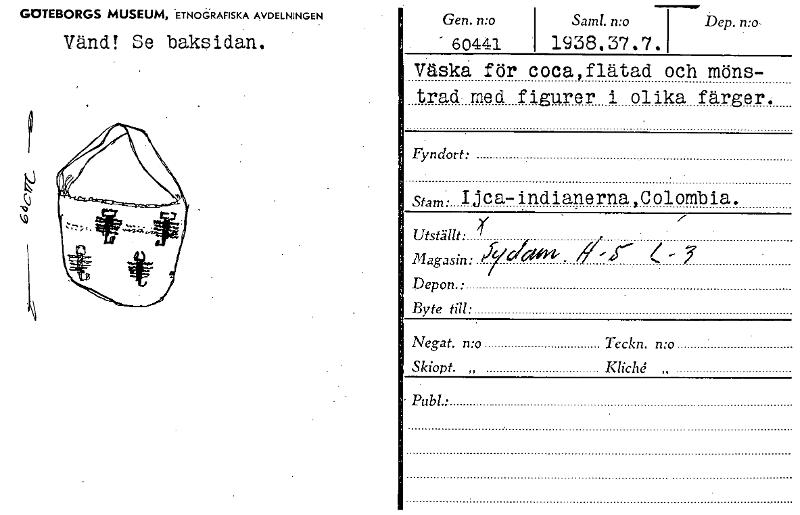 GÖTEBORGS MUSEUM, ETNOGRAFISKA AVDELNINGEN
Vänd! Se baksidan.
Gen. n:o
60441
Saml. n:o
1938.37.7.
Dep. n:o
Väska för coca,flätad och möns-
trad med figurer i olika färger.
Fyndort:
Stam: Ijca-indianerna,Colombia.
Utställt: x
Magasin: Sydam. H-5 L-3
Depon.:
Byte till:
Negat. n:o
Teckn. n:o
Skiopt. „
Kliché „
Publ.: